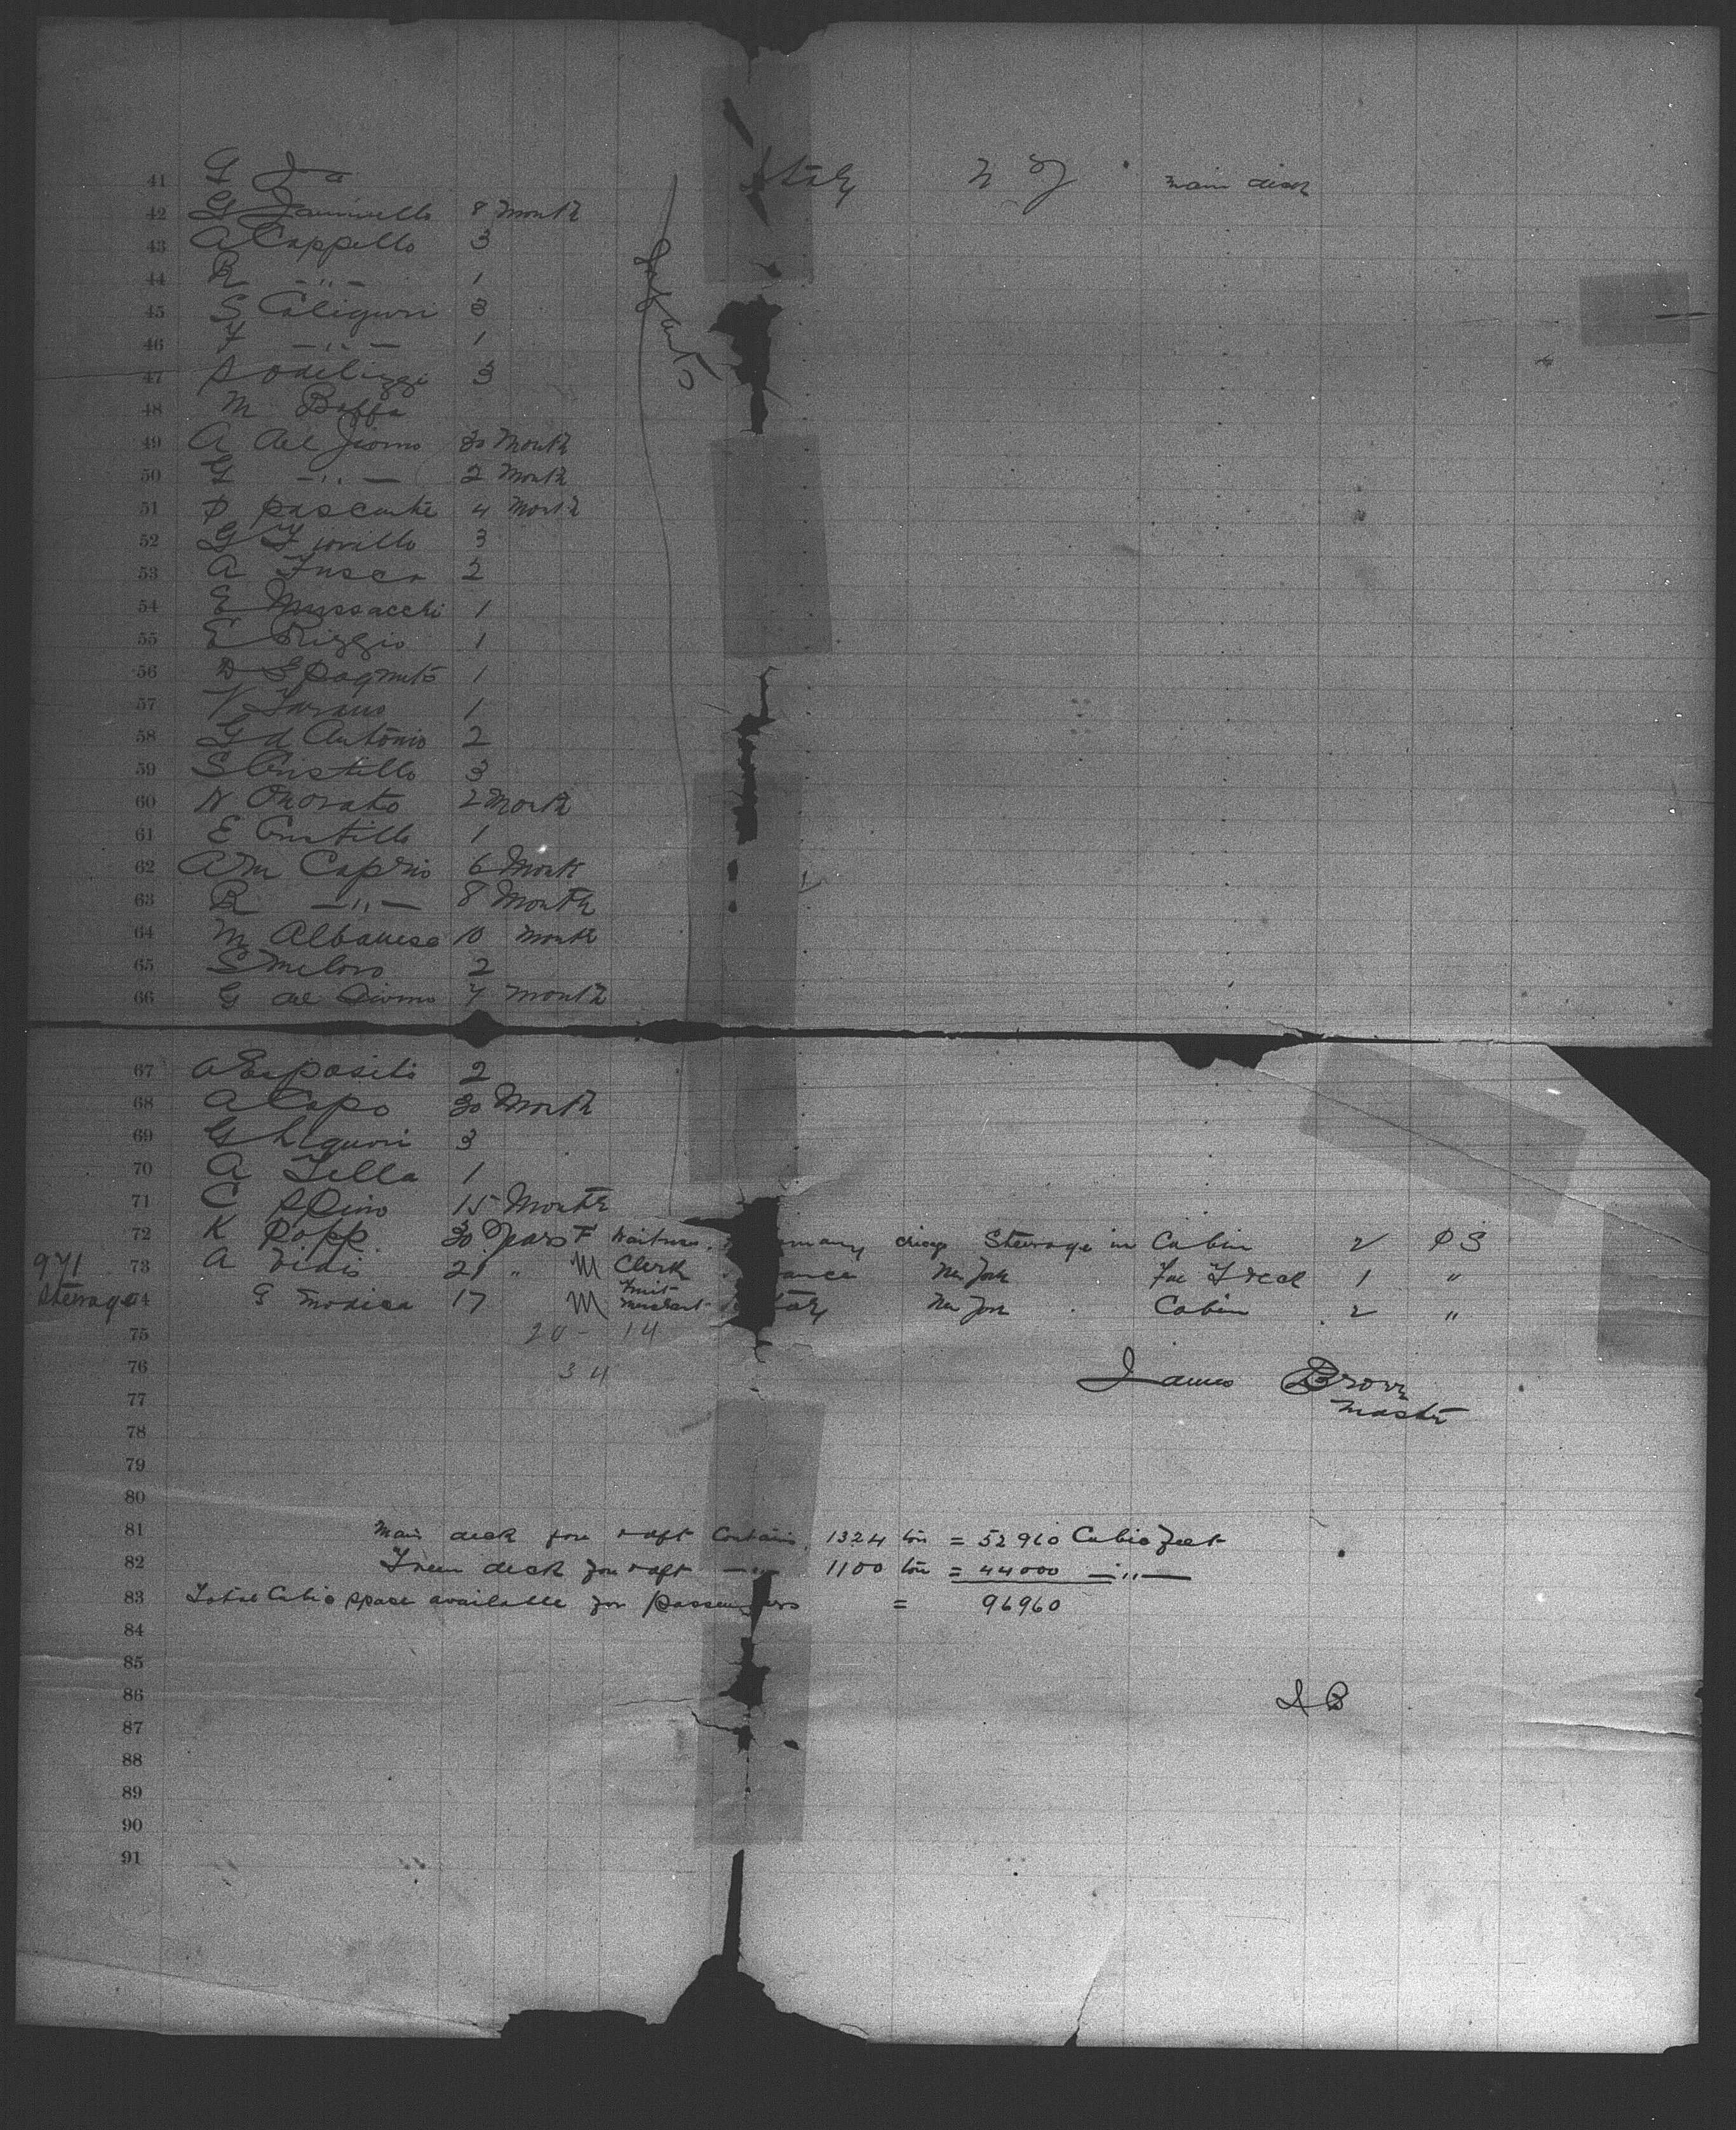 41 G Italy N Y main deck
42 G 8 Month
43 A Cappello 3
44 R -"- 1
45 S Caliguri 3
46 F -"- 1
47 3
48 M Boffa
49 A del Jiorno 30 Month
50 G -"- 2 Month
51 P 4 Month
52 G 3
53 A Fusco 2
54 E Mussacchi 1
55 E Riggio 1
56 D Spagnuto 1
57 V 1
58 G d Antonio 2
59 S Cristillo 3
60 N Onorato 2 Month
61 E Cristillo 1
62 A M Caprio 6 Month
63 R -"- 8 Month
64 M Albanese 10 Month
65 S Meloro 2
66 G del Giorno 7 Month
Infants
67 A Esposito 2
68 A Capo 30 Month
69 G Liguori 3
70 A Zella 1
71 C Spino 15 Month
72 K Popp 30 Years F Waitress. many Chicago Steerage in Cabin 2 P S
971
73 A Vidis 21 " M Clerk ance New York Fore T deck 1 "
Steerage
74 G Modica 17 M Fruit Merchant Italy New York Cabin 2 "
75 20 - 14
76 34
James Brown
77 Master
78
79
80
81 Main deck fore & aft Contains 1324 ton = 52960 Cubic feet
82 Tween deck fore & aft -"- 1100 ton = 44000 -"-
83 Total Cubic space available for passengers = 96960
84
85
86 J B
87
88
89
90
91